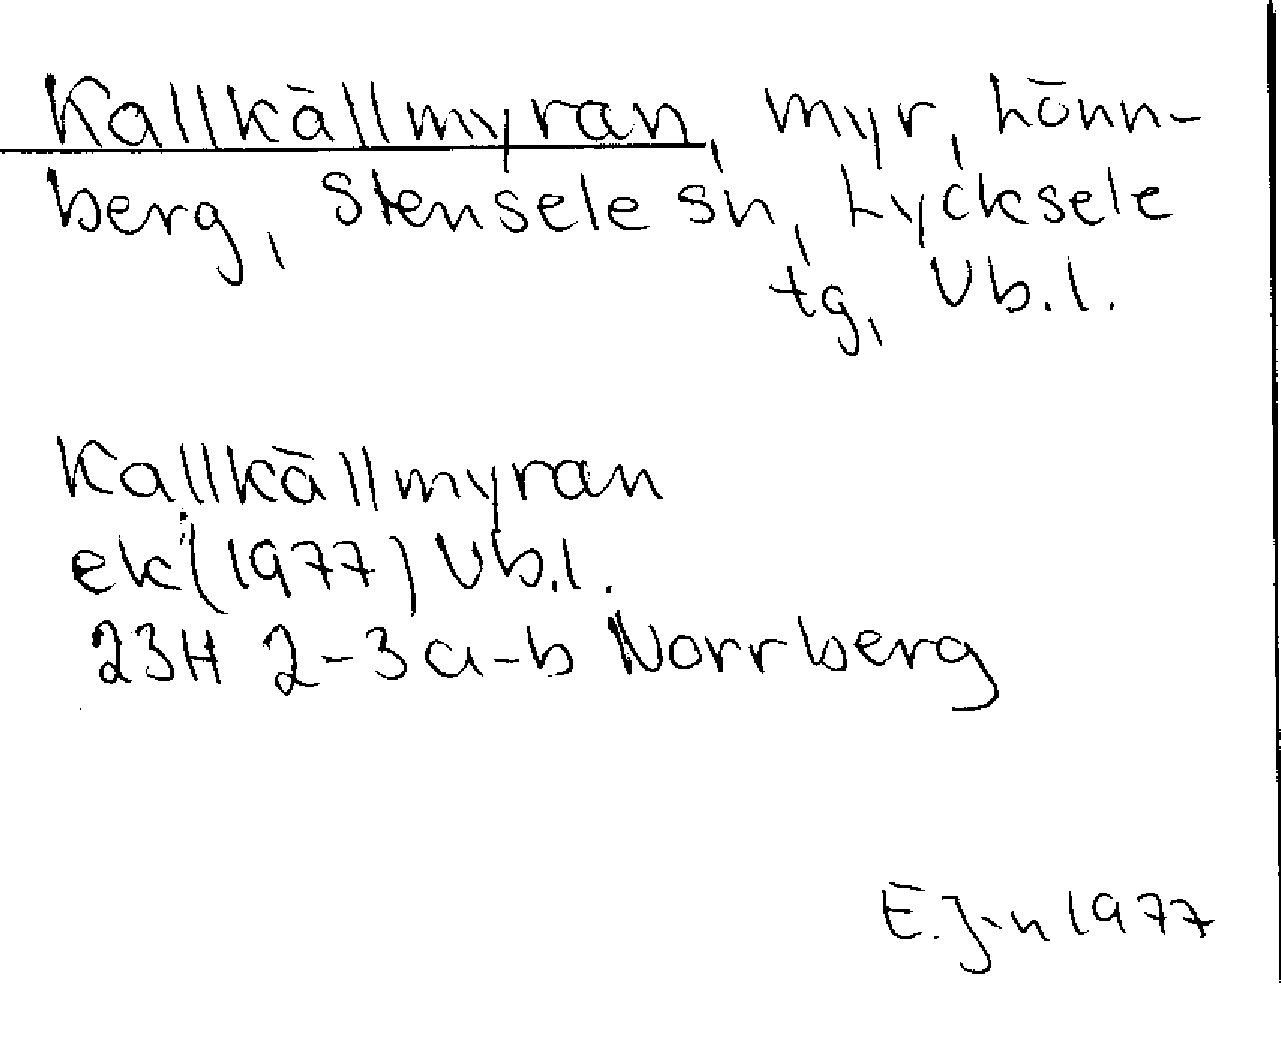 Kallkällmyran, myr, Lönn-
berg, Stensele sn, Lycksele
tg, Vb.l.
Kallkällmyran
ek (1977) Vb.l.
23H 2-3 a-b Norrberg
E.J-n 1977